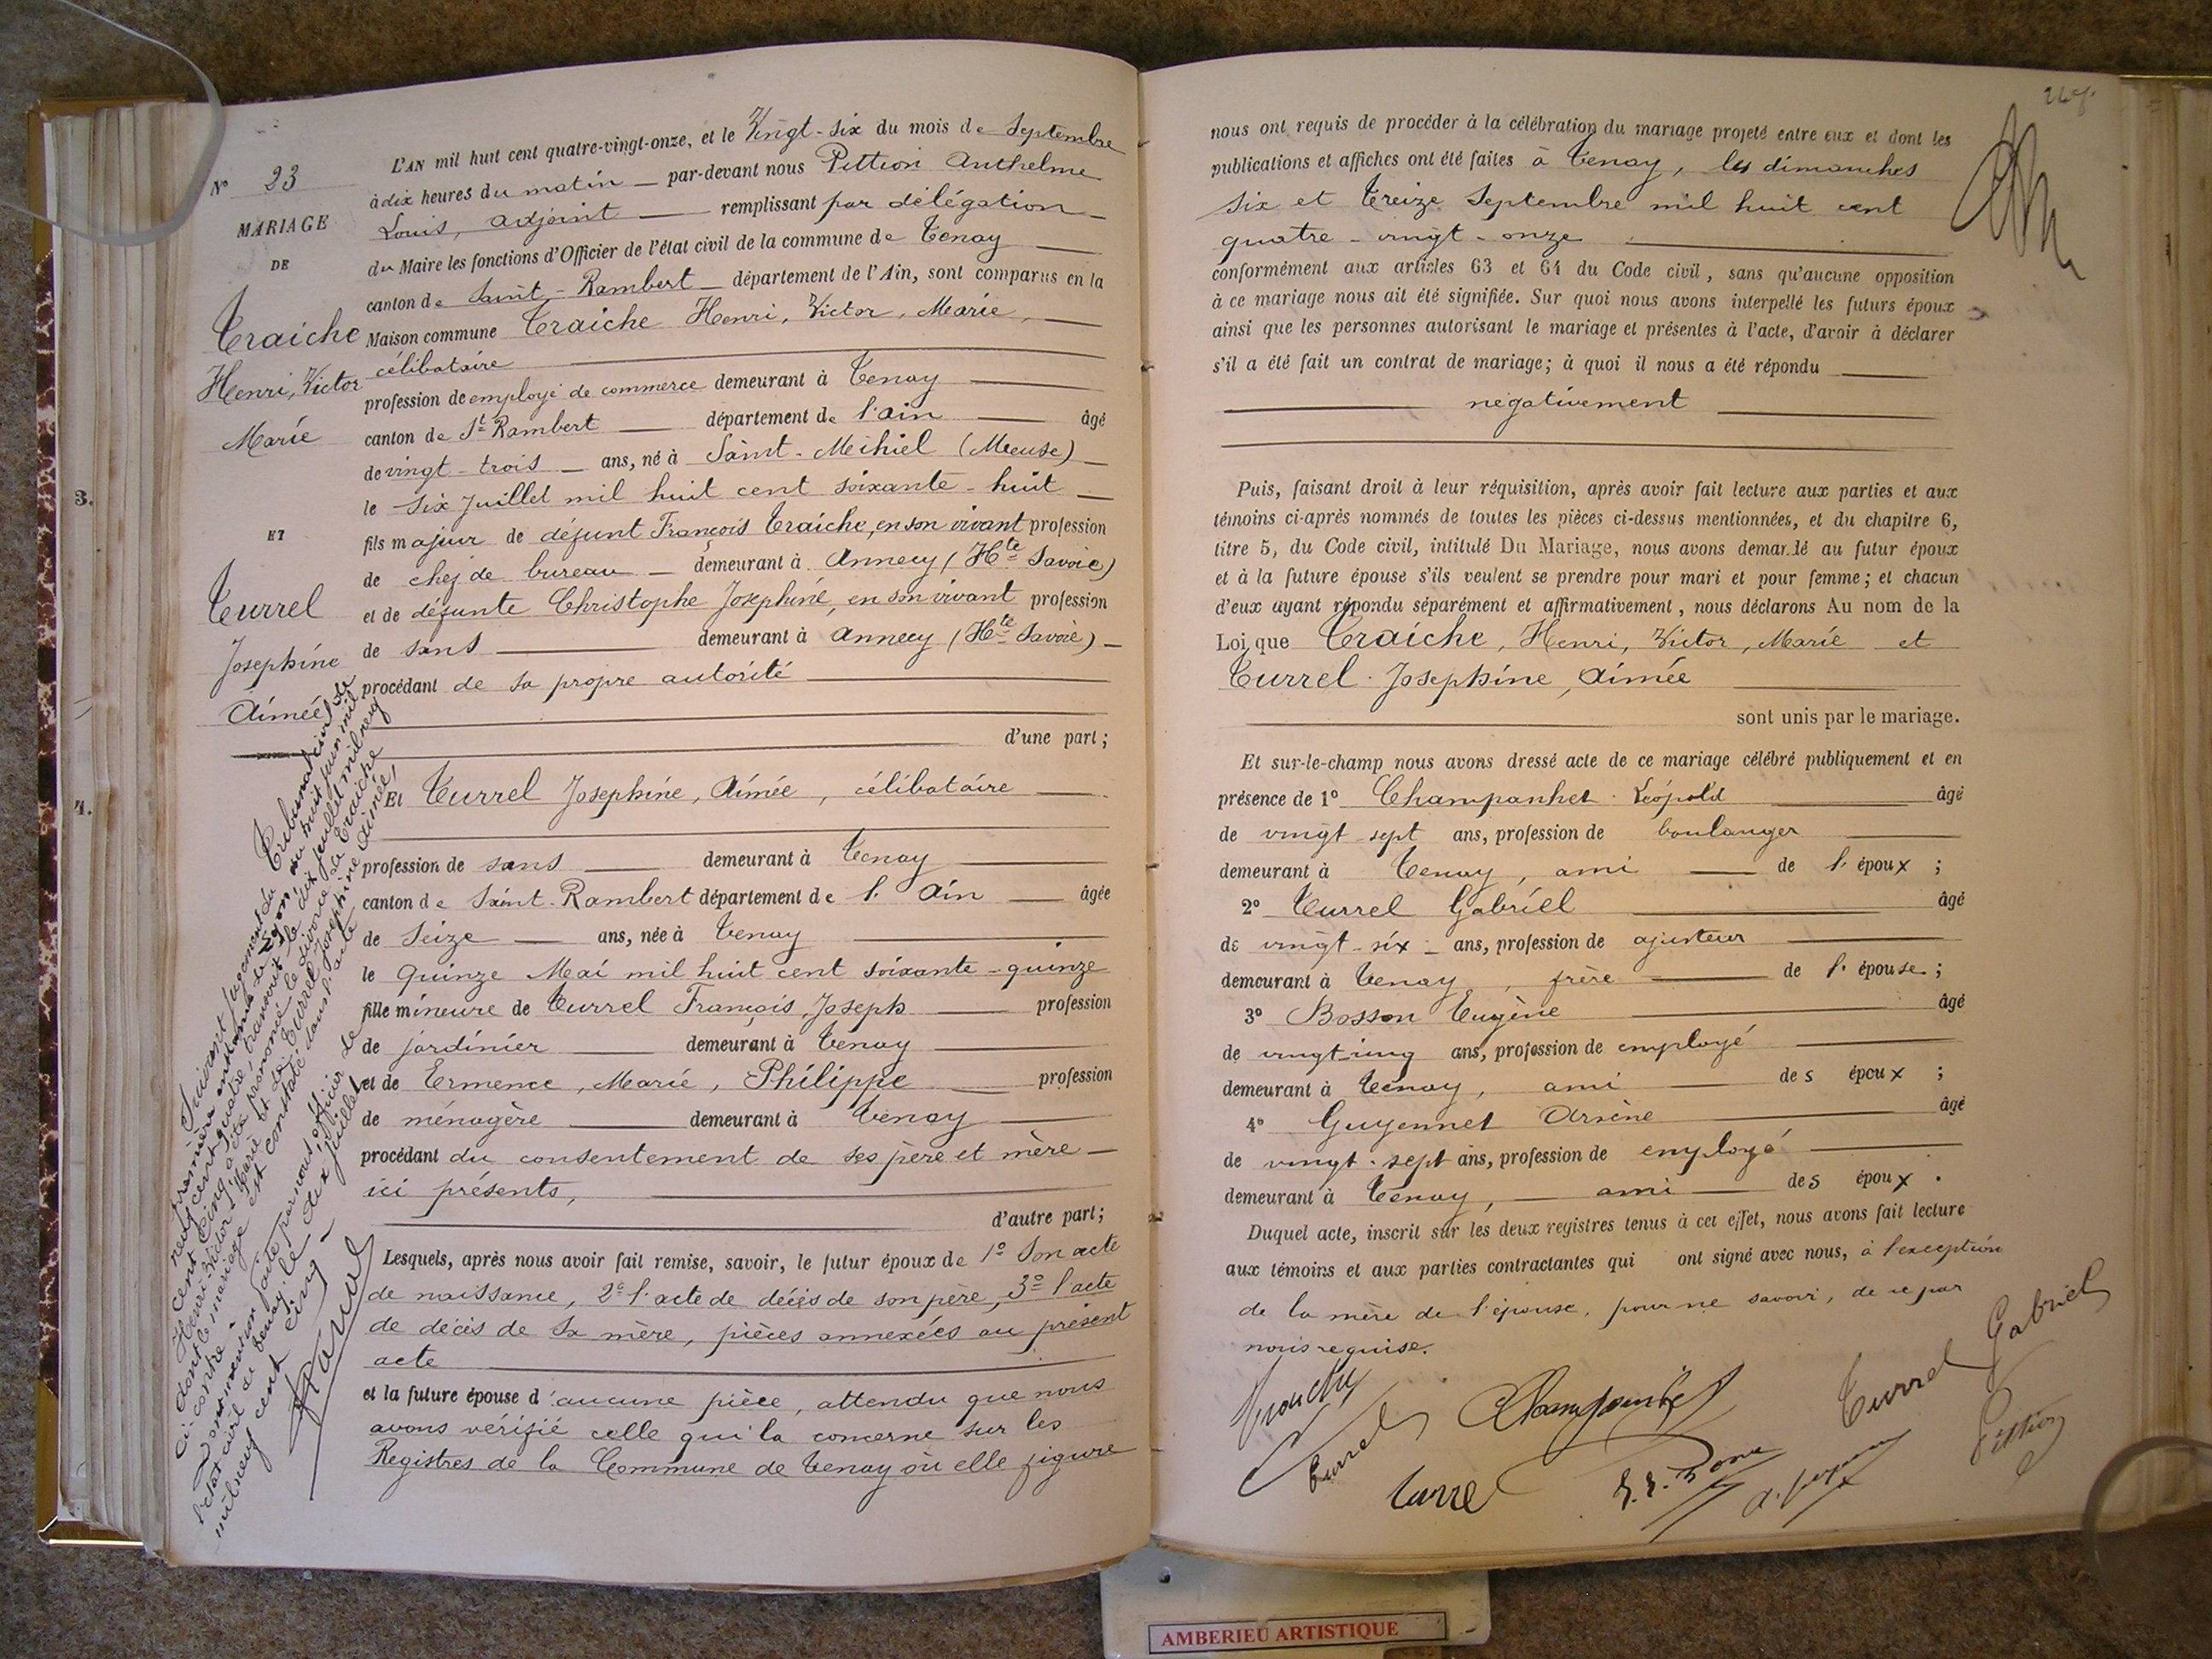 N° 23
MARIAGE
DE
Traiche
Henri, Victor
Marie
ET
Turrel
Josephine
Aimée
L'AN mil huit cent quatre-vingt-onze, et le Vingt-six du mois de Septembre
à dix heures du matin — par-devant nous Pittion Anthelme
Louis, adjoint — remplissant par délégation —
du Maire les fonctions d'Officier de l'état civil de la commune de Tenay
canton de Saint-Rambert — département de l'Ain, sont comparus en la
Maison commune Traiche Henri, Victor, Marie,
célibataire
profession de employé de commerce demeurant à Tenay
canton de St Rambert — département de l'ain — âgé
de vingt-trois — ans, né à Saint-Meihiel (Meuse) —
le six Juillet mil huit cent soixante-huit —
fils majeur de défunt François Traiche, en son vivant profession
de chef de bureau — demeurant à Annecy (Hte Savoie)
et de défunte Christophe Joséphine, en son vivant profession
de sans — demeurant à Annecy (Hte Savoie) —
procédant de sa propre autorité
d'une part;
Et Turrel Josephine, Aimée, célibataire —
profession de sans — demeurant à Tenay
canton de Saint-Rambert département de l'Ain — âgée
de seize — ans, née à Tenay
le quinze Mai mil huit cent soixante-quinze
fille mineure de Turrel François, Joseph — profession
de jardinier — demeurant à Tenay
et de Ermence, Marie, Philippe — profession
de ménagère — demeurant à Tenay
procédant du consentement de ses père et mère —
ici présents,
d'autre part;
Lesquels, après nous avoir fait remise, savoir, le futur époux de 1° son acte
de naissance, 2° l'acte de décès de son père, 3° l'acte
de décès de sa mère, pièces annexées au présent
acte
et la future épouse d'aucune pièce, attendu que nous
avons vérifié celle qui la concerne sur les
Registres de la Commune de Tenay où elle figure
Suivant jugement du Tribunal civil de
première instance de Lyon, du huit juin mil
neuf cent quatre, transcrit le dix juillet mil neuf
cent cinq, a été prononcé le divorce de Traiche
Henri Victor Marie et de Turrel Josephine Aimée,
dont le mariage est constaté dans l'acte
ci-contre.
Dont mention faite par nous officier de
l'état civil de Tenay, le dix juillet
mil neuf cent cinq —
nous ont requis de procéder à la célébration du mariage projeté entre eux et dont les
publications et affiches ont été faites à Tenay, les dimanches
six et treize Septembre mil huit cent
quatre-vingt-onze
conformément aux articles 63 et 64 du Code civil, sans qu'aucune opposition
à ce mariage nous ait été signifiée. Sur quoi nous avons interpellé les futurs époux
ainsi que les personnes autorisant le mariage et présentes à l'acte, d'avoir à déclarer
s'il a été fait un contrat de mariage; à quoi il nous a été répondu
négativement
Puis, faisant droit à leur réquisition, après avoir fait lecture aux parties et aux
témoins ci-après nommés de toutes les pièces ci-dessus mentionnées, et du chapitre 6,
titre 5, du Code civil, intitulé Du Mariage, nous avons demandé au futur époux
et à la future épouse s'ils veulent se prendre pour mari et pour femme; et chacun
d'eux ayant répondu séparément et affirmativement, nous déclarons Au nom de la
Loi que Traiche, Henri, Victor, Marie et
Turrel Josephine, Aimée
sont unis par le mariage.
Et sur-le-champ nous avons dressé acte de ce mariage célébré publiquement et en
présence de 1° Champanhet Léopold — âgé
de vingt-sept ans, profession de boulanger
demeurant à Tenay, ami — de l'époux;
2° Turrel Gabriel — âgé
de vingt-six — ans, profession de ajusteur
demeurant à Tenay, frère — de l'épouse;
3° Bosson Eugène — âgé
de vingt-cinq ans, profession de employé
demeurant à Tenay, ami — des époux;
4° Guyennet Arsène — âgé
de vingt-sept ans, profession de employé
demeurant à Tenay, — ami — des époux.
Duquel acte, inscrit sur les deux registres tenus à cet effet, nous avons fait lecture
aux témoins et aux parties contractantes qui ont signé avec nous, à l'exception
de la mère de l'épouse, pour ne savoir, de ce par
nous requise.
Turrel Champanhet Turrel Gabriel
Turrel Pittion
3.
4.
AMBERIEU ARTISTIQUE